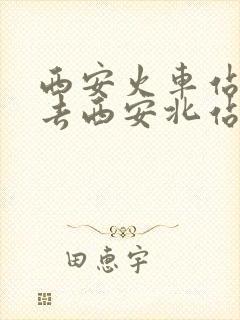 西安火車佔
去西安北佔
田惠宇